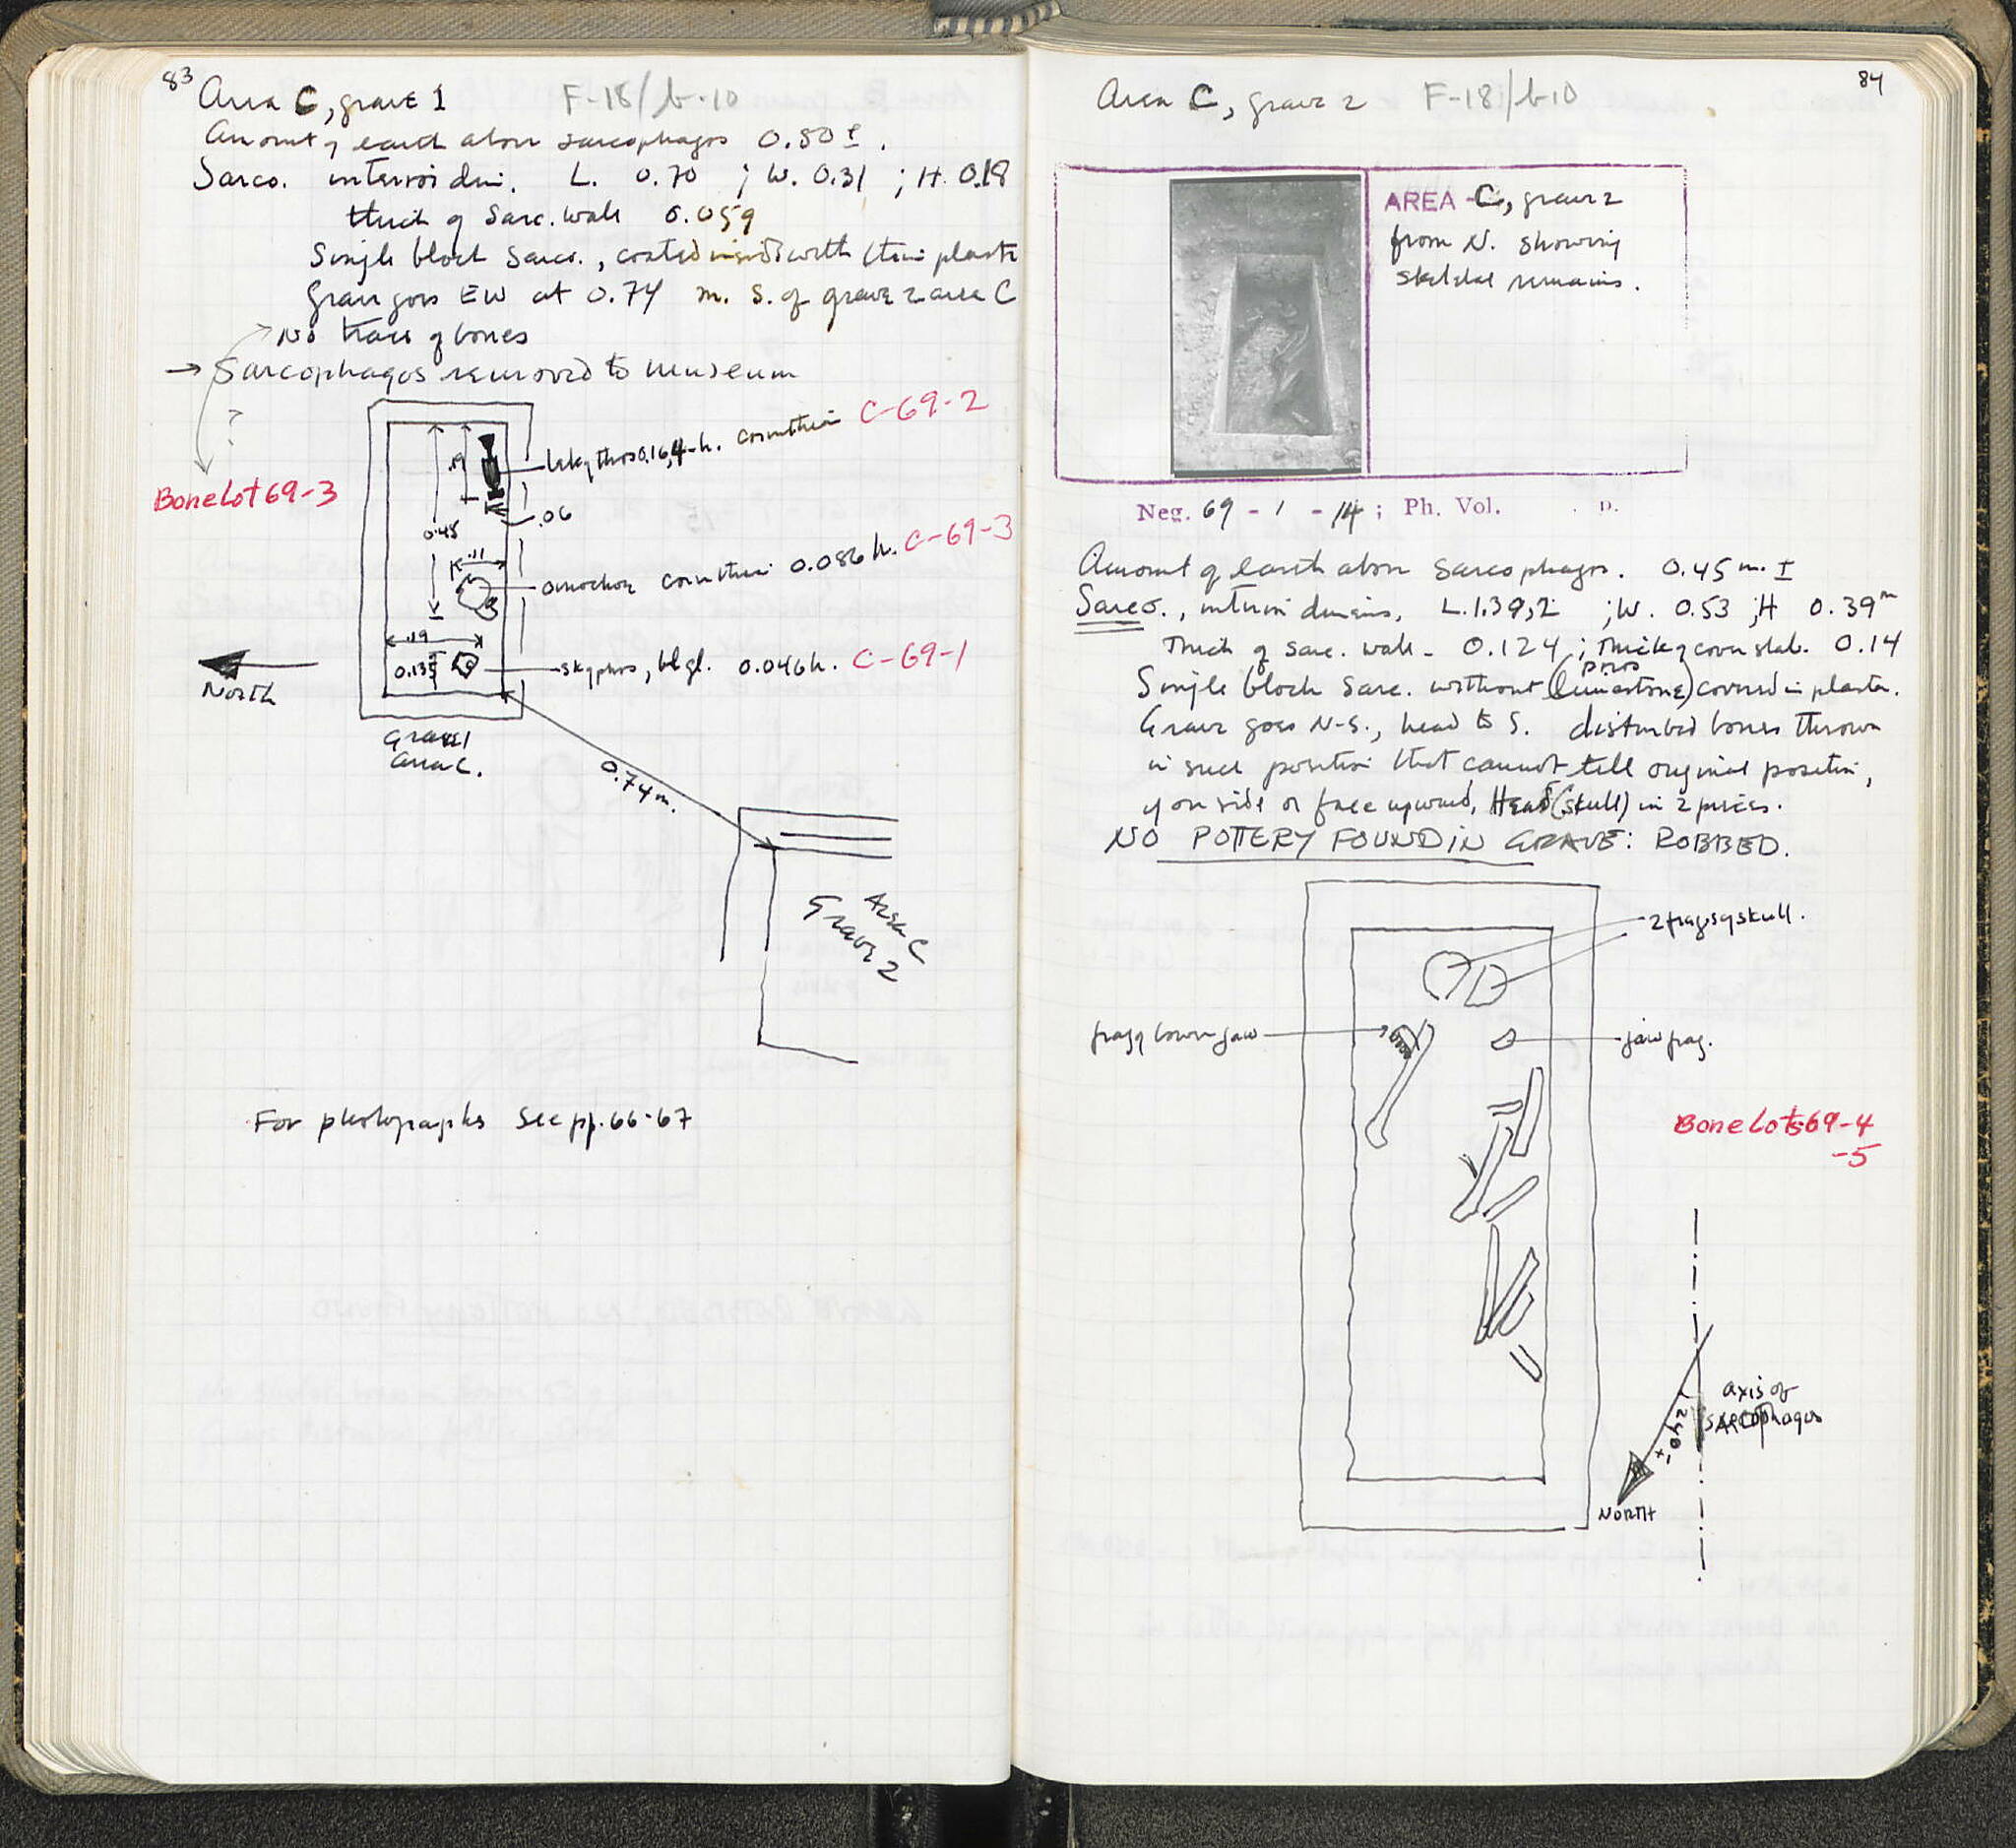 83
Area C, grave 1 F-18/b-10
Amount of earth above sarcophagos 0.80 ±.
Sarco. interior dim. L. 0.70 ; W. 0.31 ; H. 0.18
thick of sarc. wall 0.059
Single block sarco., coated inside with thin plaster
Grave goes EW at 0.74 m. S. of grave 2 area C
No trace of bones
→ Sarcophagos removed to museum
?
Bone Lot 69-3
.19
lekythos 0.164 h. corinthian C-69-2
.06
0.45
.11
oinochoe corinthian 0.086 h. C-69-3
.19
0.135
skyphos, bl gl. 0.046 h. C-69-1
North
Grave 1
Area C.
0.74 m.
Area C
Grave 2
For photographs see pp. 66-67
84
Area C, grave 2 F-18/b10
AREA C, grave 2
from N. showing
skeletal remains.
Neg. 69 - 1 - 14 ; Ph. Vol. p.
Amount of earth above sarcophagos. 0.45 m. ±
Sarco., interior dimens, L. 1.39,2 ; W. 0.53 ; H 0.39 m
Thick of sarc. wall - 0.124 ; thick of cover slab. 0.14
poros
Single block sarc. without (limestone) covered in plaster.
Grave goes N-S., head to S. disturbed bones thrown
in such position that cannot tell original position,
if on side or face upward, Head (skull) in 2 pieces.
NO POTTERY FOUND IN GRAVE: ROBBED.
2 frags of skull.
frag of lower jaw
jaw frag.
Bone Lots 69-4
-5
axis of
sarcophagos
24° ±
NORTH